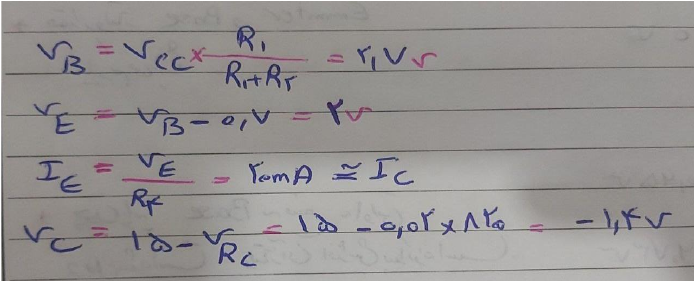 V_B = V_CC × R₁ / (R₁+R₂) = ۲,۷ v
V_E = V_B - ۰,۷ = ۲v
I_E = V_E / R_۴ = ۲۰mA ≅ I_C
V_C = ۱۵ - V_RC = ۱۵ - ۰,۰۲ × ۸۲۰ = -۱,۴v